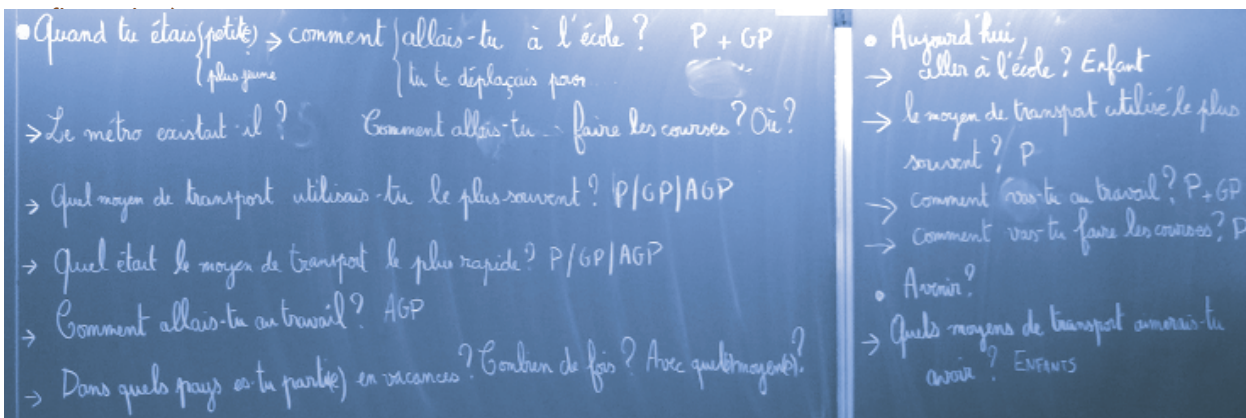 • Quand tu étais (petit(e) → comment allais-tu à l'école ? P + GP
plus jeune tu te déplaçais pour...
→ Le métro existait-il ? Comment allais-tu ... faire les courses ? Où ?
→ Quel moyen de transport utilisais-tu le plus souvent ? P/GP/AGP
→ Quel était le moyen de transport le plus rapide ? P/GP/AGP
→ Comment allais-tu au travail ? AGP
→ Dans quels pays es-tu parti(e) en vacances ? Combien de fois ? Avec quel(s) moyen(s) ?
• Aujourd'hui,
→ aller à l'école ? Enfant
→ le moyen de transport utilisé le plus
souvent ? P
→ comment vas-tu au travail ? P + GP
→ comment vas-tu faire les courses ? P
• Avenir ?
→ Quels moyens de transport aimerais-tu
avoir ? ENFANTS